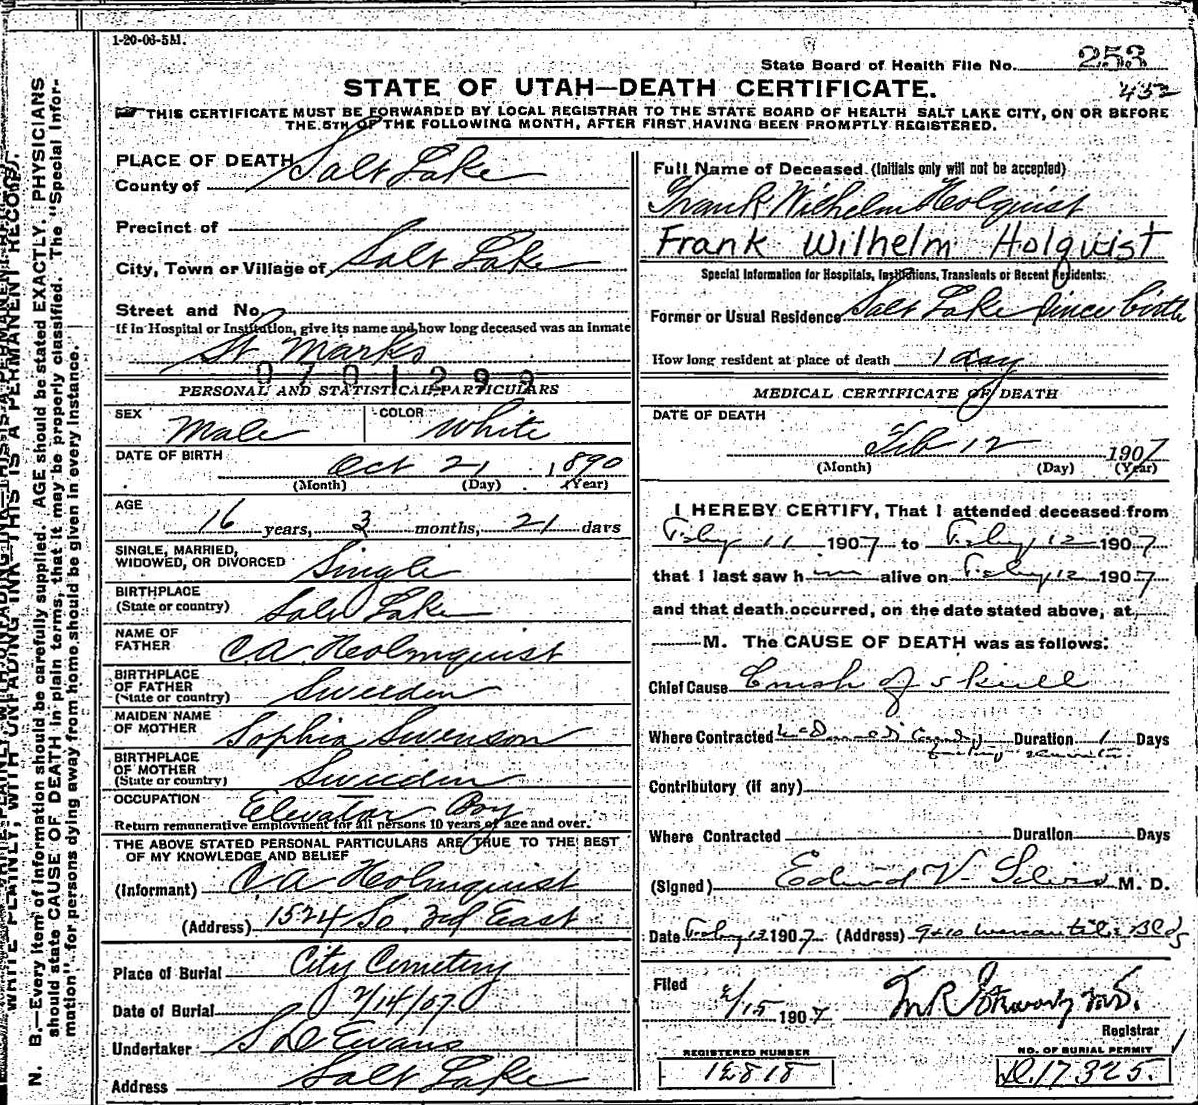 1-20-06-5M.
State Board of Health File No. 253
STATE OF UTAH—DEATH CERTIFICATE. 432
THIS CERTIFICATE MUST BE FORWARDED BY LOCAL REGISTRAR TO THE STATE BOARD OF HEALTH SALT LAKE CITY, ON OR BEFORE
THE 5TH OF THE FOLLOWING MONTH, AFTER FIRST HAVING BEEN PROMPTLY REGISTERED.
PLACE OF DEATH
County of Salt Lake
Precinct of
City, Town or Village of Salt Lake
Street and No.
If in Hospital or Institution, give its name and how long deceased was an inmate
St Marks
0701299
PERSONAL AND STATISTICAL PARTICULARS
SEX Male COLOR White
DATE OF BIRTH Oct 21 1890
(Month) (Day) (Year)
AGE 16 years, 3 months, 21 days
SINGLE, MARRIED,
WIDOWED, OR DIVORCED Single
BIRTHPLACE
(State or country) Salt Lake
NAME OF
FATHER C.A. Holmquist
BIRTHPLACE
OF FATHER
(State or country) Sweeden
MAIDEN NAME
OF MOTHER Sophia Swenson
BIRTHPLACE
OF MOTHER
(State or country) Sweeden
OCCUPATION Elevator Boy
Return remunerative employment for all persons 10 years of age and over.
THE ABOVE STATED PERSONAL PARTICULARS ARE TRUE TO THE BEST
OF MY KNOWLEDGE AND BELIEF
(Informant) C A Holmquist
(Address) 1524 So. 3rd East
Place of Burial City Cemetery
Date of Burial 2/14/07
Undertaker S D Evans
Address Salt Lake
Full Name of Deceased (Initials only will not be accepted)
Frank Wilhelm Holquist
Frank Wilhelm Holquist
Special Information for Hospitals, Institutions, Transients or Recent Residents:
Former or Usual Residence Salt Lake since birth
How long resident at place of death 1 day
MEDICAL CERTIFICATE OF DEATH
DATE OF DEATH
Feb 12 1907
(Month) (Day) (Year)
I HEREBY CERTIFY, That I attended deceased from
Feby 11 1907 to Feby 12 1907
that I last saw him alive on Feby 12 1907
and that death occurred, on the date stated above, at
M. The CAUSE OF DEATH was as follows:
Chief Cause Crush of skull
Where Contracted Duration 1 Days
Contributory (if any)
Where Contracted Duration Days
(Signed) Edward V. M. D.
Date Feby 12 1907 (Address) Mercantile Bldg
Filed 2/15 1907 M.D.
Registrar
REGISTERED NUMBER
12818
NO. OF BURIAL PERMIT
D.17325.
N. B.—Every item of information should be carefully supplied. AGE should be stated EXACTLY. PHYSICIANS
should state CAUSE OF DEATH in plain terms, that it may be properly classified. The "Special Infor-
mation" for persons dying away from home should be given in every instance.